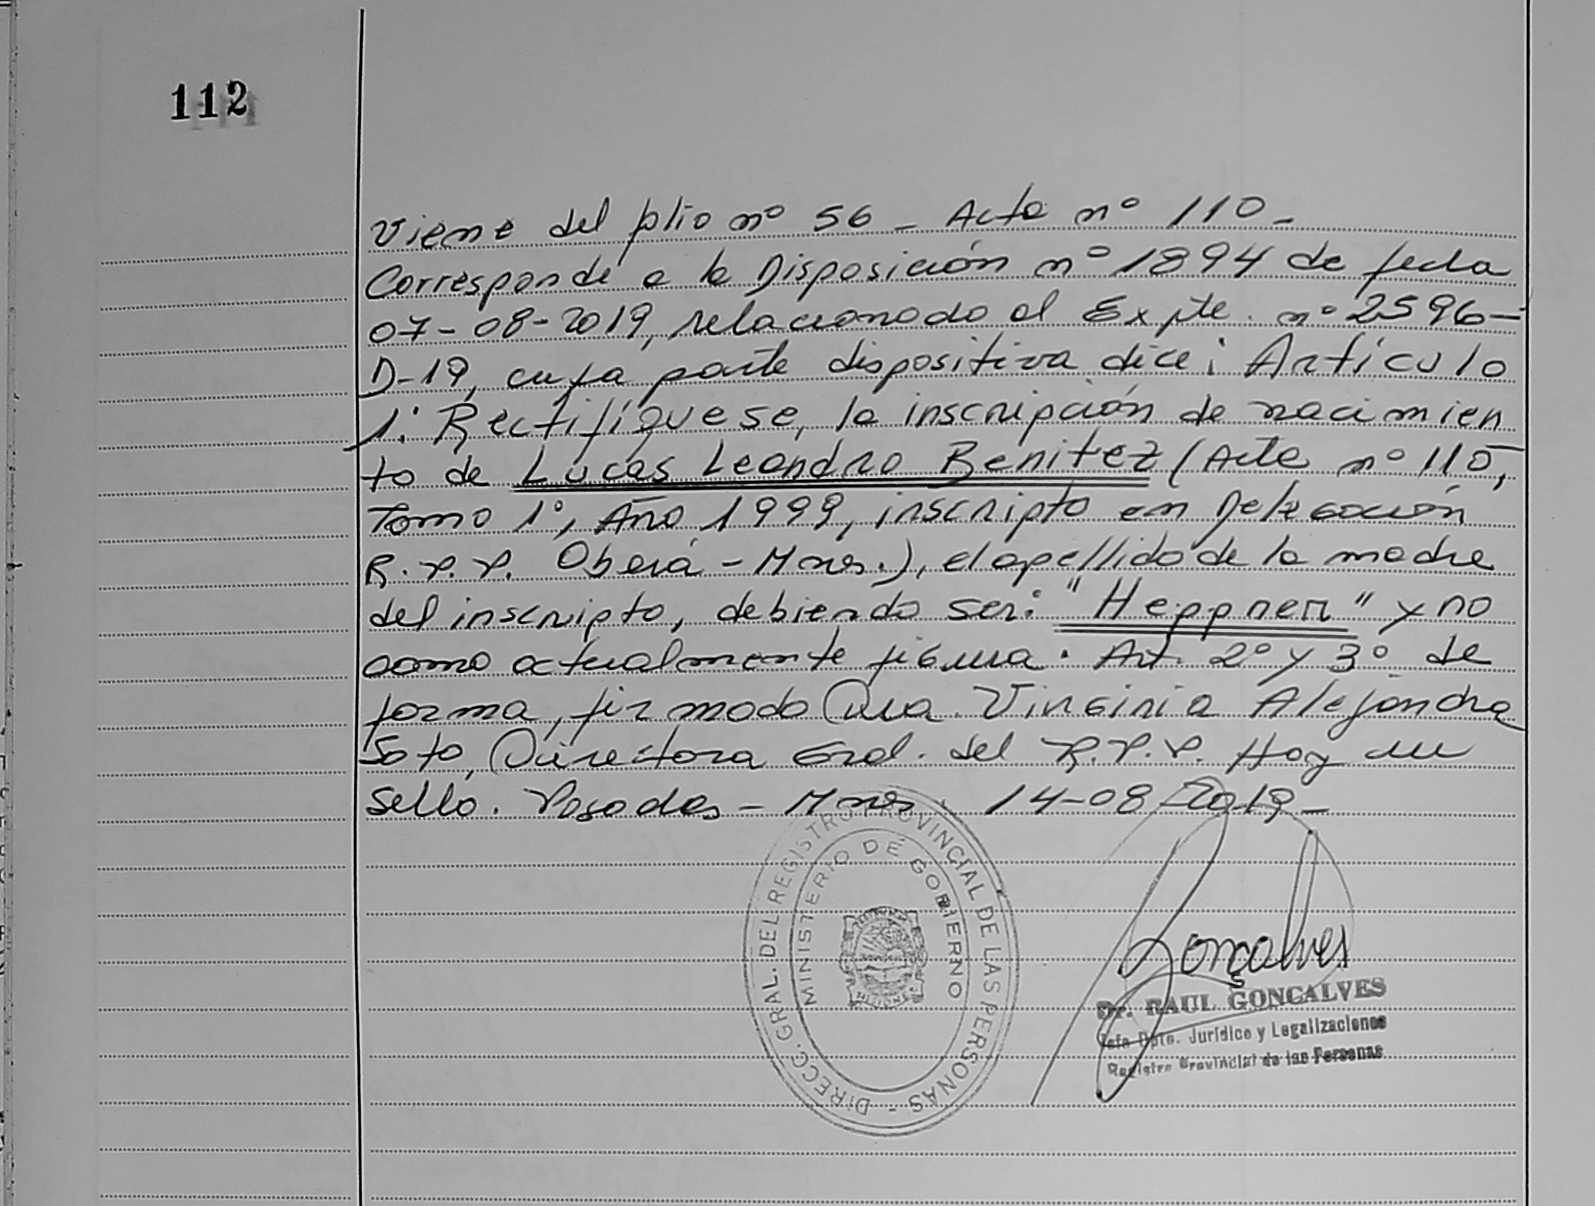 112
Viene del folio nº 56 - Acta nº 110 -
Corresponde a la Disposición nº 1894 de fecha
07-08-2019, relacionado al Expte. nº 2596-
D-19, cuya parte dispositiva dice: Artículo
1º Rectifíquese, la inscripción de nacimien
to de Lucas Leandro Benitez (Acta nº 110,
Tomo 1º, Año 1999, inscripto en Delegación
R.P.P. Oberá - Mnes.), el apellido de la madre
del inscripto, debiendo ser: "Heppner" y no
como actualmente figura. Art. 2º y 3º de
forma, firmado Dra. Virginia Alejandra
Soto, Directora Gral. del R.P.P. Hay un
sello. Posadas - Mnes. 14-08-2019 -
DIRECC. GRAL. DEL REGISTRO PROVINCIAL DE LAS PERSONAS -
MINISTERIO DE GOBIERNO
MISIONES
Gonçalves
Dr. RAUL GONÇALVES
Jefe Dpto. Jurídico y Legalizaciones
Registro Provincial de las Personas